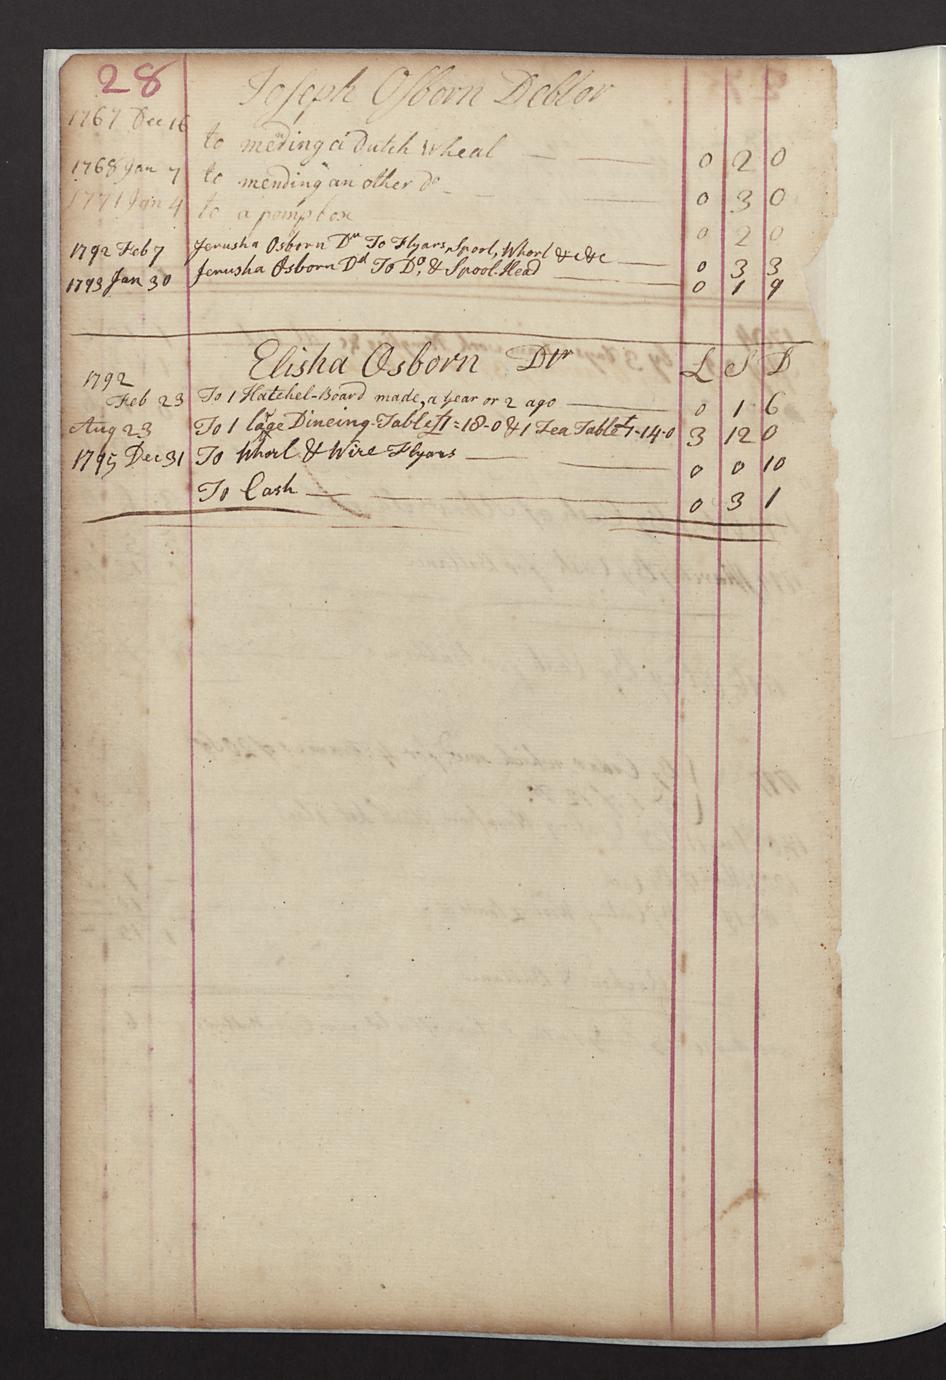 28
Joseph Osborn Debtor
1767 Dec 16 to mending a dutch wheal 0 2 0
1768 Jan 7 to mending an other do 0 3 0
1771 Jan 4 to a pomp box 0 2 0
1792 Feb 7 Jerusha Osborn Dr To Flyars, Spool, Whorl &c &c 0 3 3
1793 Jan 30 Jerusha Osborn Dd To Do. & Spool-Head 0 1 9
Elisha Osborn Dtr L S D
1792
Feb 23 To 1 Hatchel-Board made, a year or 2 ago 0 1 6
Aug 23 To 1 lage Dineing-Table £1=18-0 & 1 Tea Table £1-14-0 3 12 0
1795 Dec 31 To Whorl & Wire Flyars 0 0 10
To Cash 0 3 1